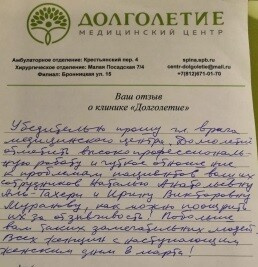 ДОЛГОЛЕТИЕ
МЕДИЦИНСКИЙ ЦЕНТР
Амбулаторное отделение: Крестьянский сер. 4
Хирургическое отделение: Малая Посадская 7/4
Филиал: Бронницкая ул. 15
spins.spb.ru
centr-dolgoletie@mail.ru
+7(812)671-01-70
Ваш отзыв
о клинике «Долголетие»
Убедительно прошу гл врача
медицинского центра Долголетие
отметить высоко профессиональ-
ную работу и чуткое отношение
к проблемам пациентов ваших
сотрудников Наталью Анатольевну
Аль-Тахери и Ирину Викторовну
Муратову, как можно поощрить
их за отзывчивость! Побольше
вам таких замечательных людей
Всех женщин с наступающим
женским днём 8 марта!